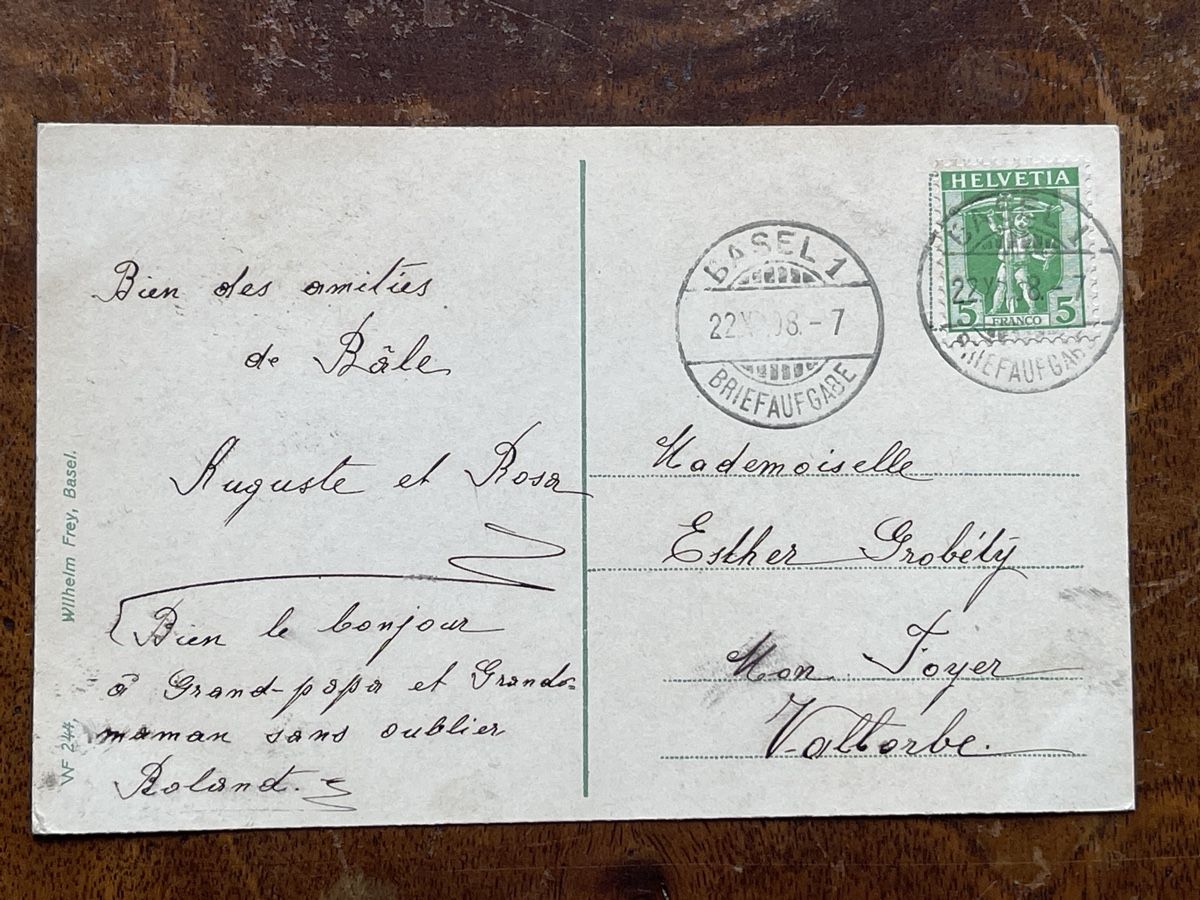 Bien des amitiés
de Bâle
Auguste et Rosa
Bien le bonjour
à Grand-papa et Grand-
maman sans oublier
Roland.
Wilhelm Frey, Basel.
WF 244,
HELVETIA
5 FRANCO 5
BASEL 1
22 08.-7
BRIEFAUFGABE
22 8.-7
BRIEFAUFGABE
Mademoiselle
Esther Grobéty
Mon Foyer
Vallorbe.